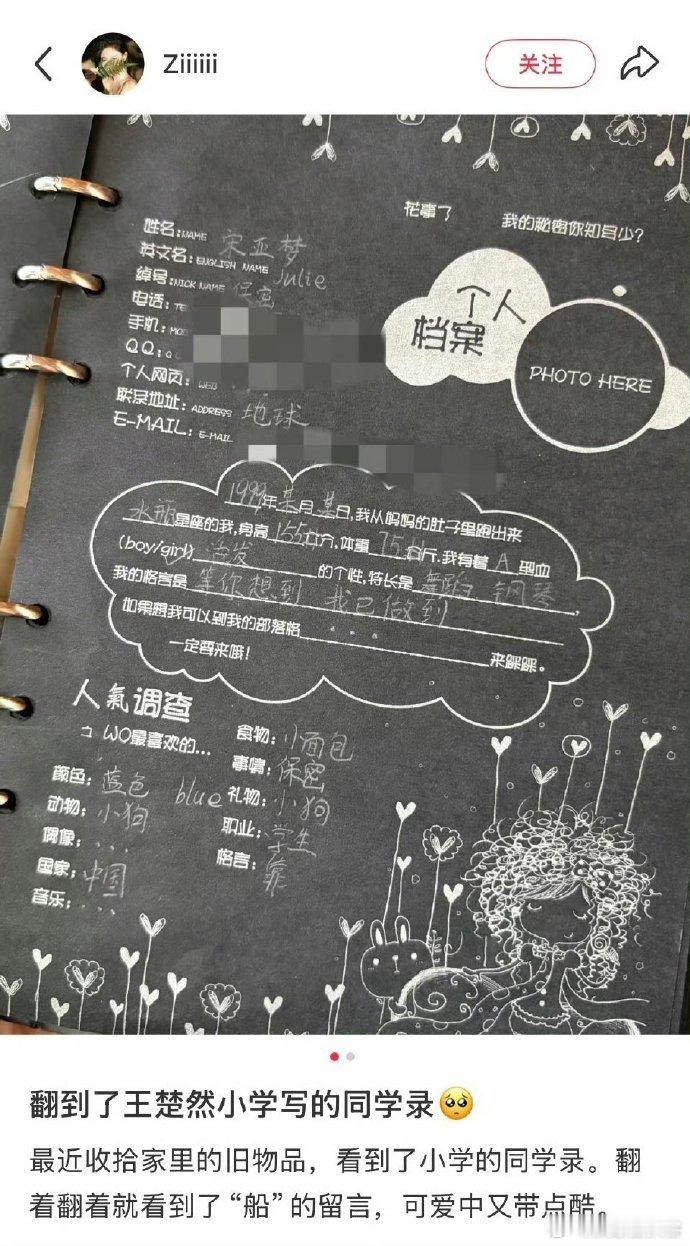 Ziiiiii
关注
花事了
我的秘密你知多少?
姓名:NAME 宋亚梦
英文名:ENGLISH NAME Julie
绰号:NICK NAME 保密
电话:TE
手机:MO
QQ:Q
个人网页:WEB
联系地址:ADDRESS 地球
E-MAIL:E-MAIL
个人
档案
PHOTO HERE
1999年某月某日,我从妈妈的肚子里跑出来
水瓶星座的我,身高155公分,体重75公斤,我有着A型血
(boy/girl) 活发的个性,特长是舞蹈 钢琴,
我的格言是等你想到 我已做到
如果跟我可以到我的部落格...
一定要来哦! 来踩踩。
人氣调查
WO最喜欢的...
颜色:蓝色 blue
动物:小狗
偶像:...
国家:中国
音乐:...
食物:小面包
事情:保密
礼物:小狗
职业:学生
格言:
翻到了王楚然小学写的同学录🥺
最近收拾家里的旧物品，看到了小学的同学录。翻
着翻着就看到了“船”的留言，可爱中又带点酷。